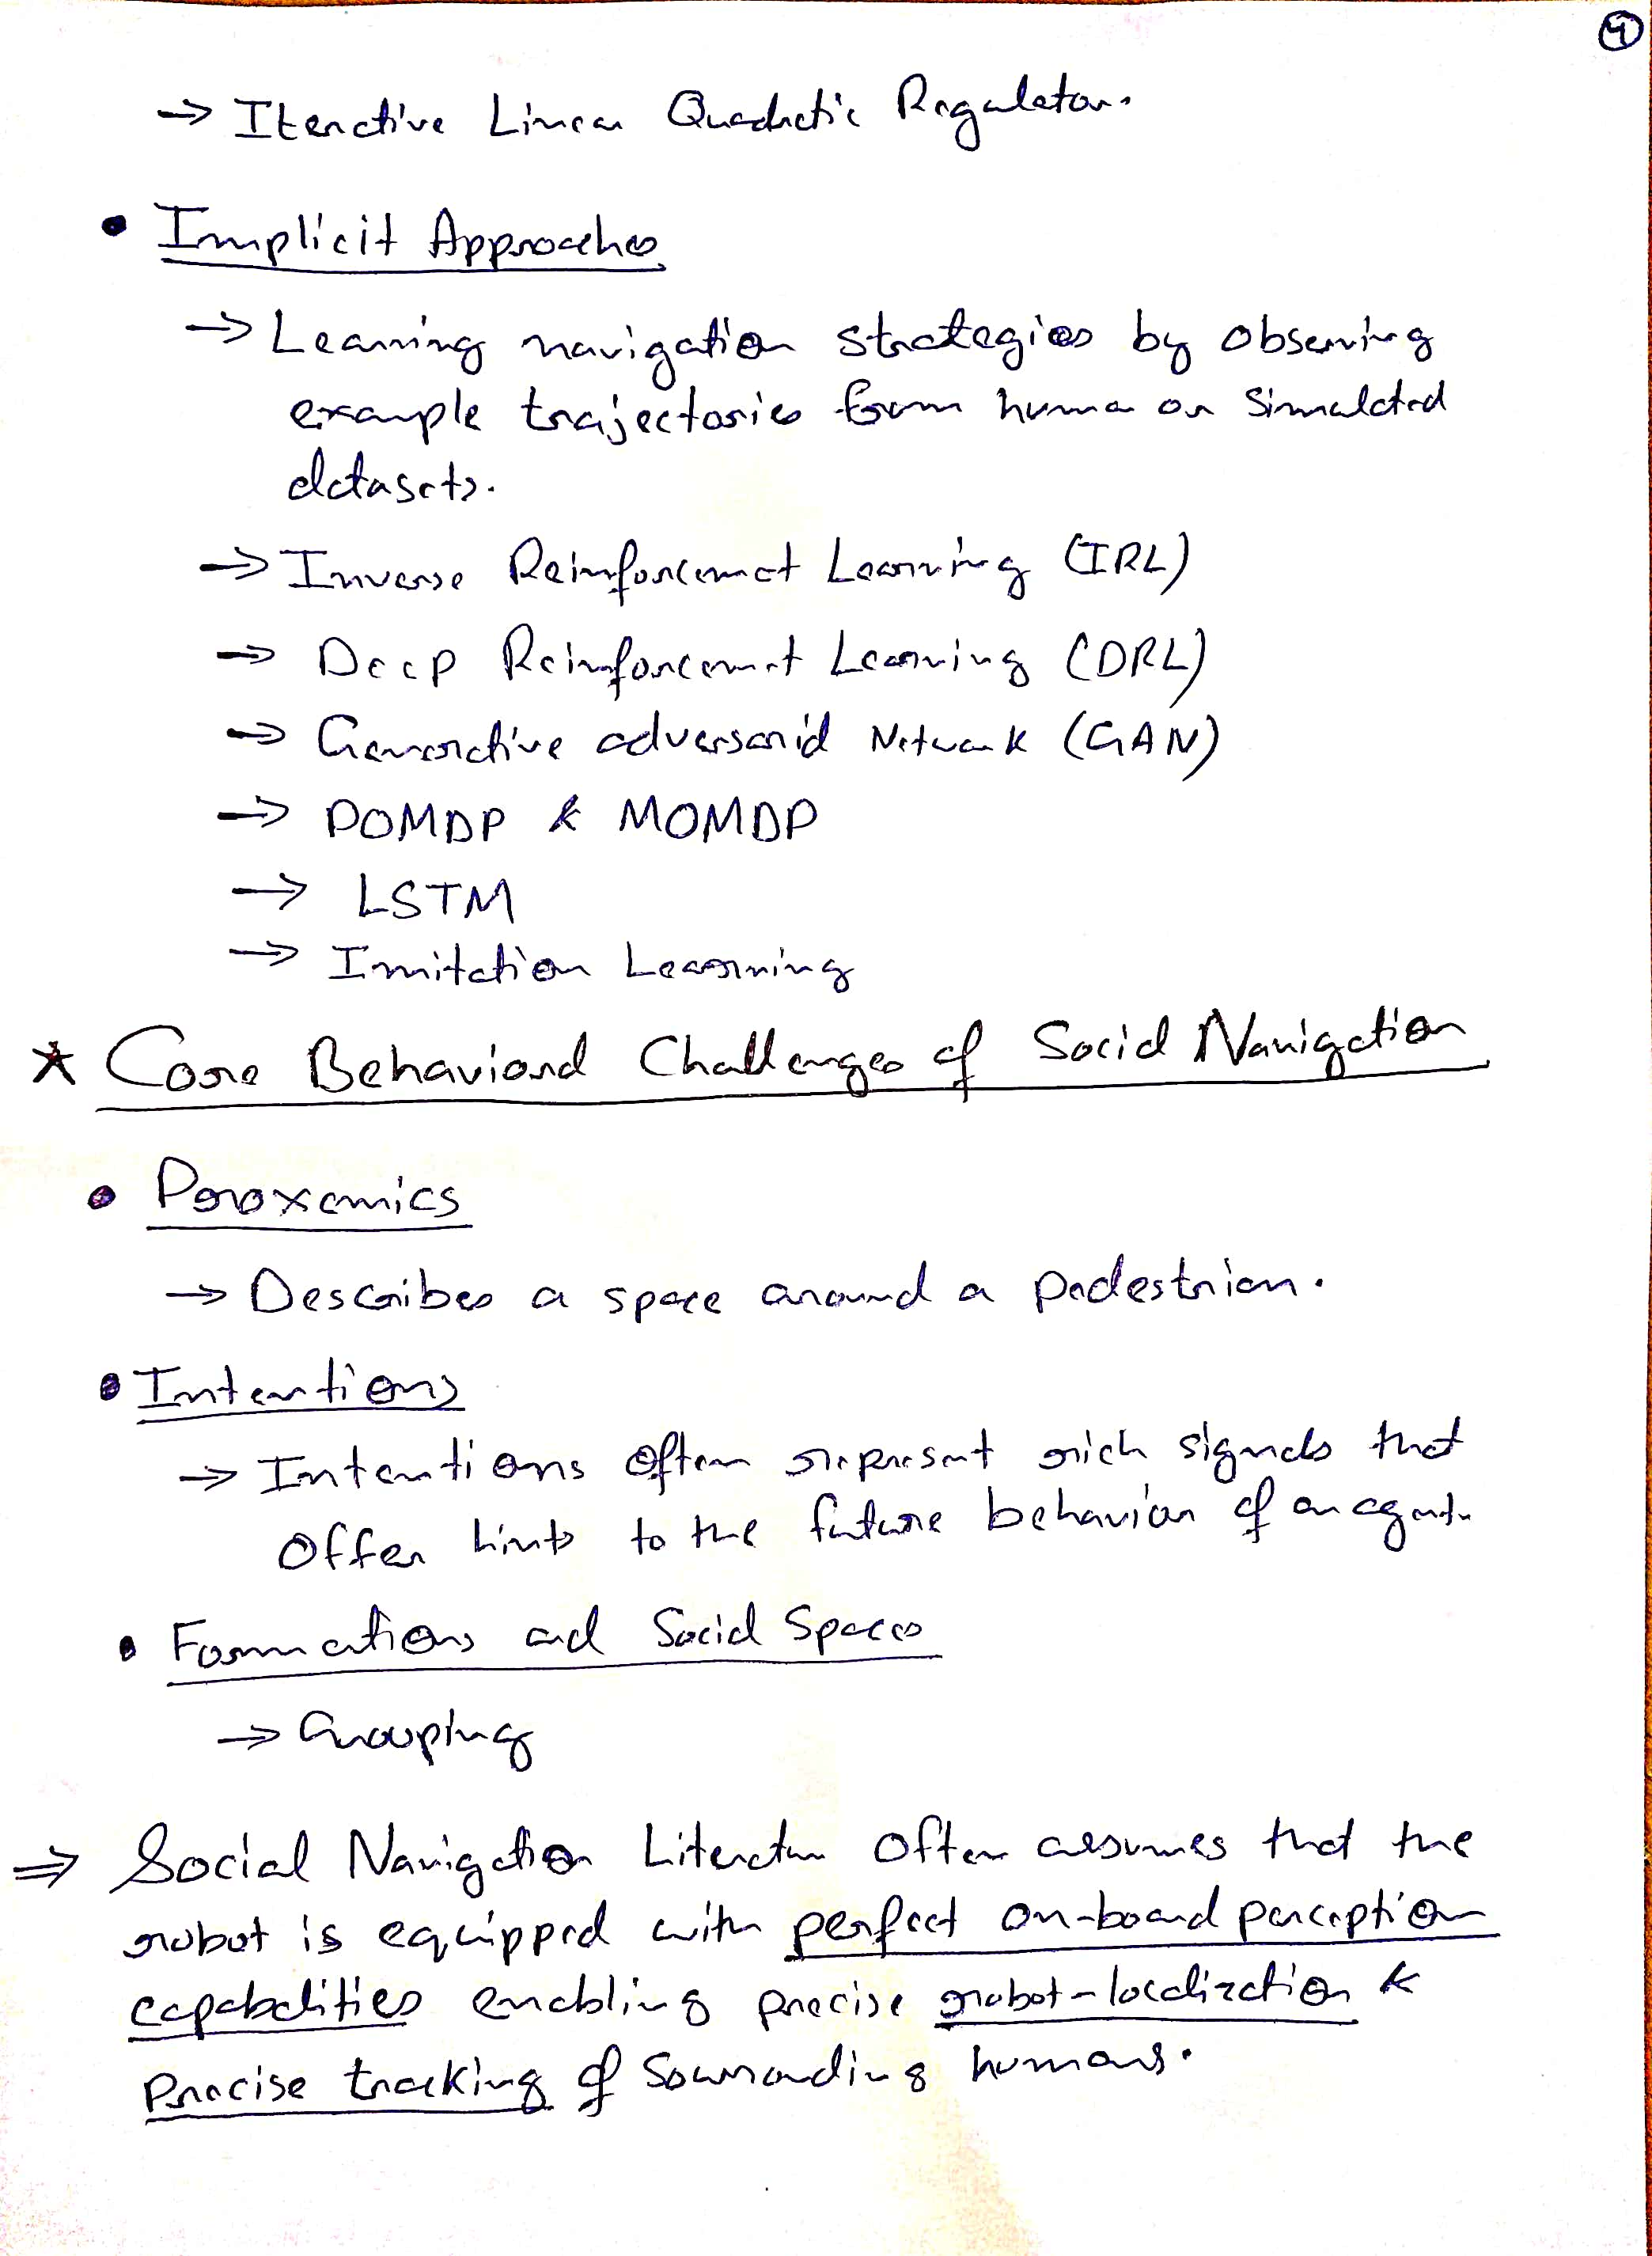 4
→ Iterative Linear Quadratic Regulator.
• Implicit Approaches
→ Learning navigation strategies by observing
example trajectories from human or simulated
datasets.
→ Inverse Reinforcement Learning (IRL)
→ Deep Reinforcement Learning (DRL)
→ Generative adversarial Network (GAN)
→ POMDP & MOMDP
→ LSTM
→ Imitation Learning
* Core Behavioral Challenges of Social Navigation
• Proxemics
→ Describes a space around a pedestrian.
• Intentions
→ Intentions often represent rich signals that
offer hints to the future behavior of an agent.
• Formations and Social Spaces
→ Grouping
⇒ Social Navigation Literature often assumes that the
robot is equipped with perfect on-board perception
capabalities enabling precise robot-localization &
Precise tracking of sourrounding humans.